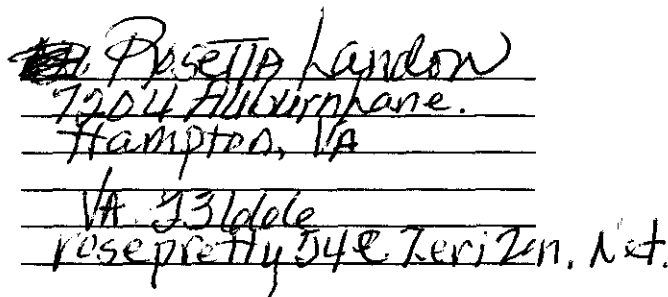 Rosetta Landon
7204 Auburn Lane.
Hampton, VA
VA 23666
rosepretty54@Verizon.Net.